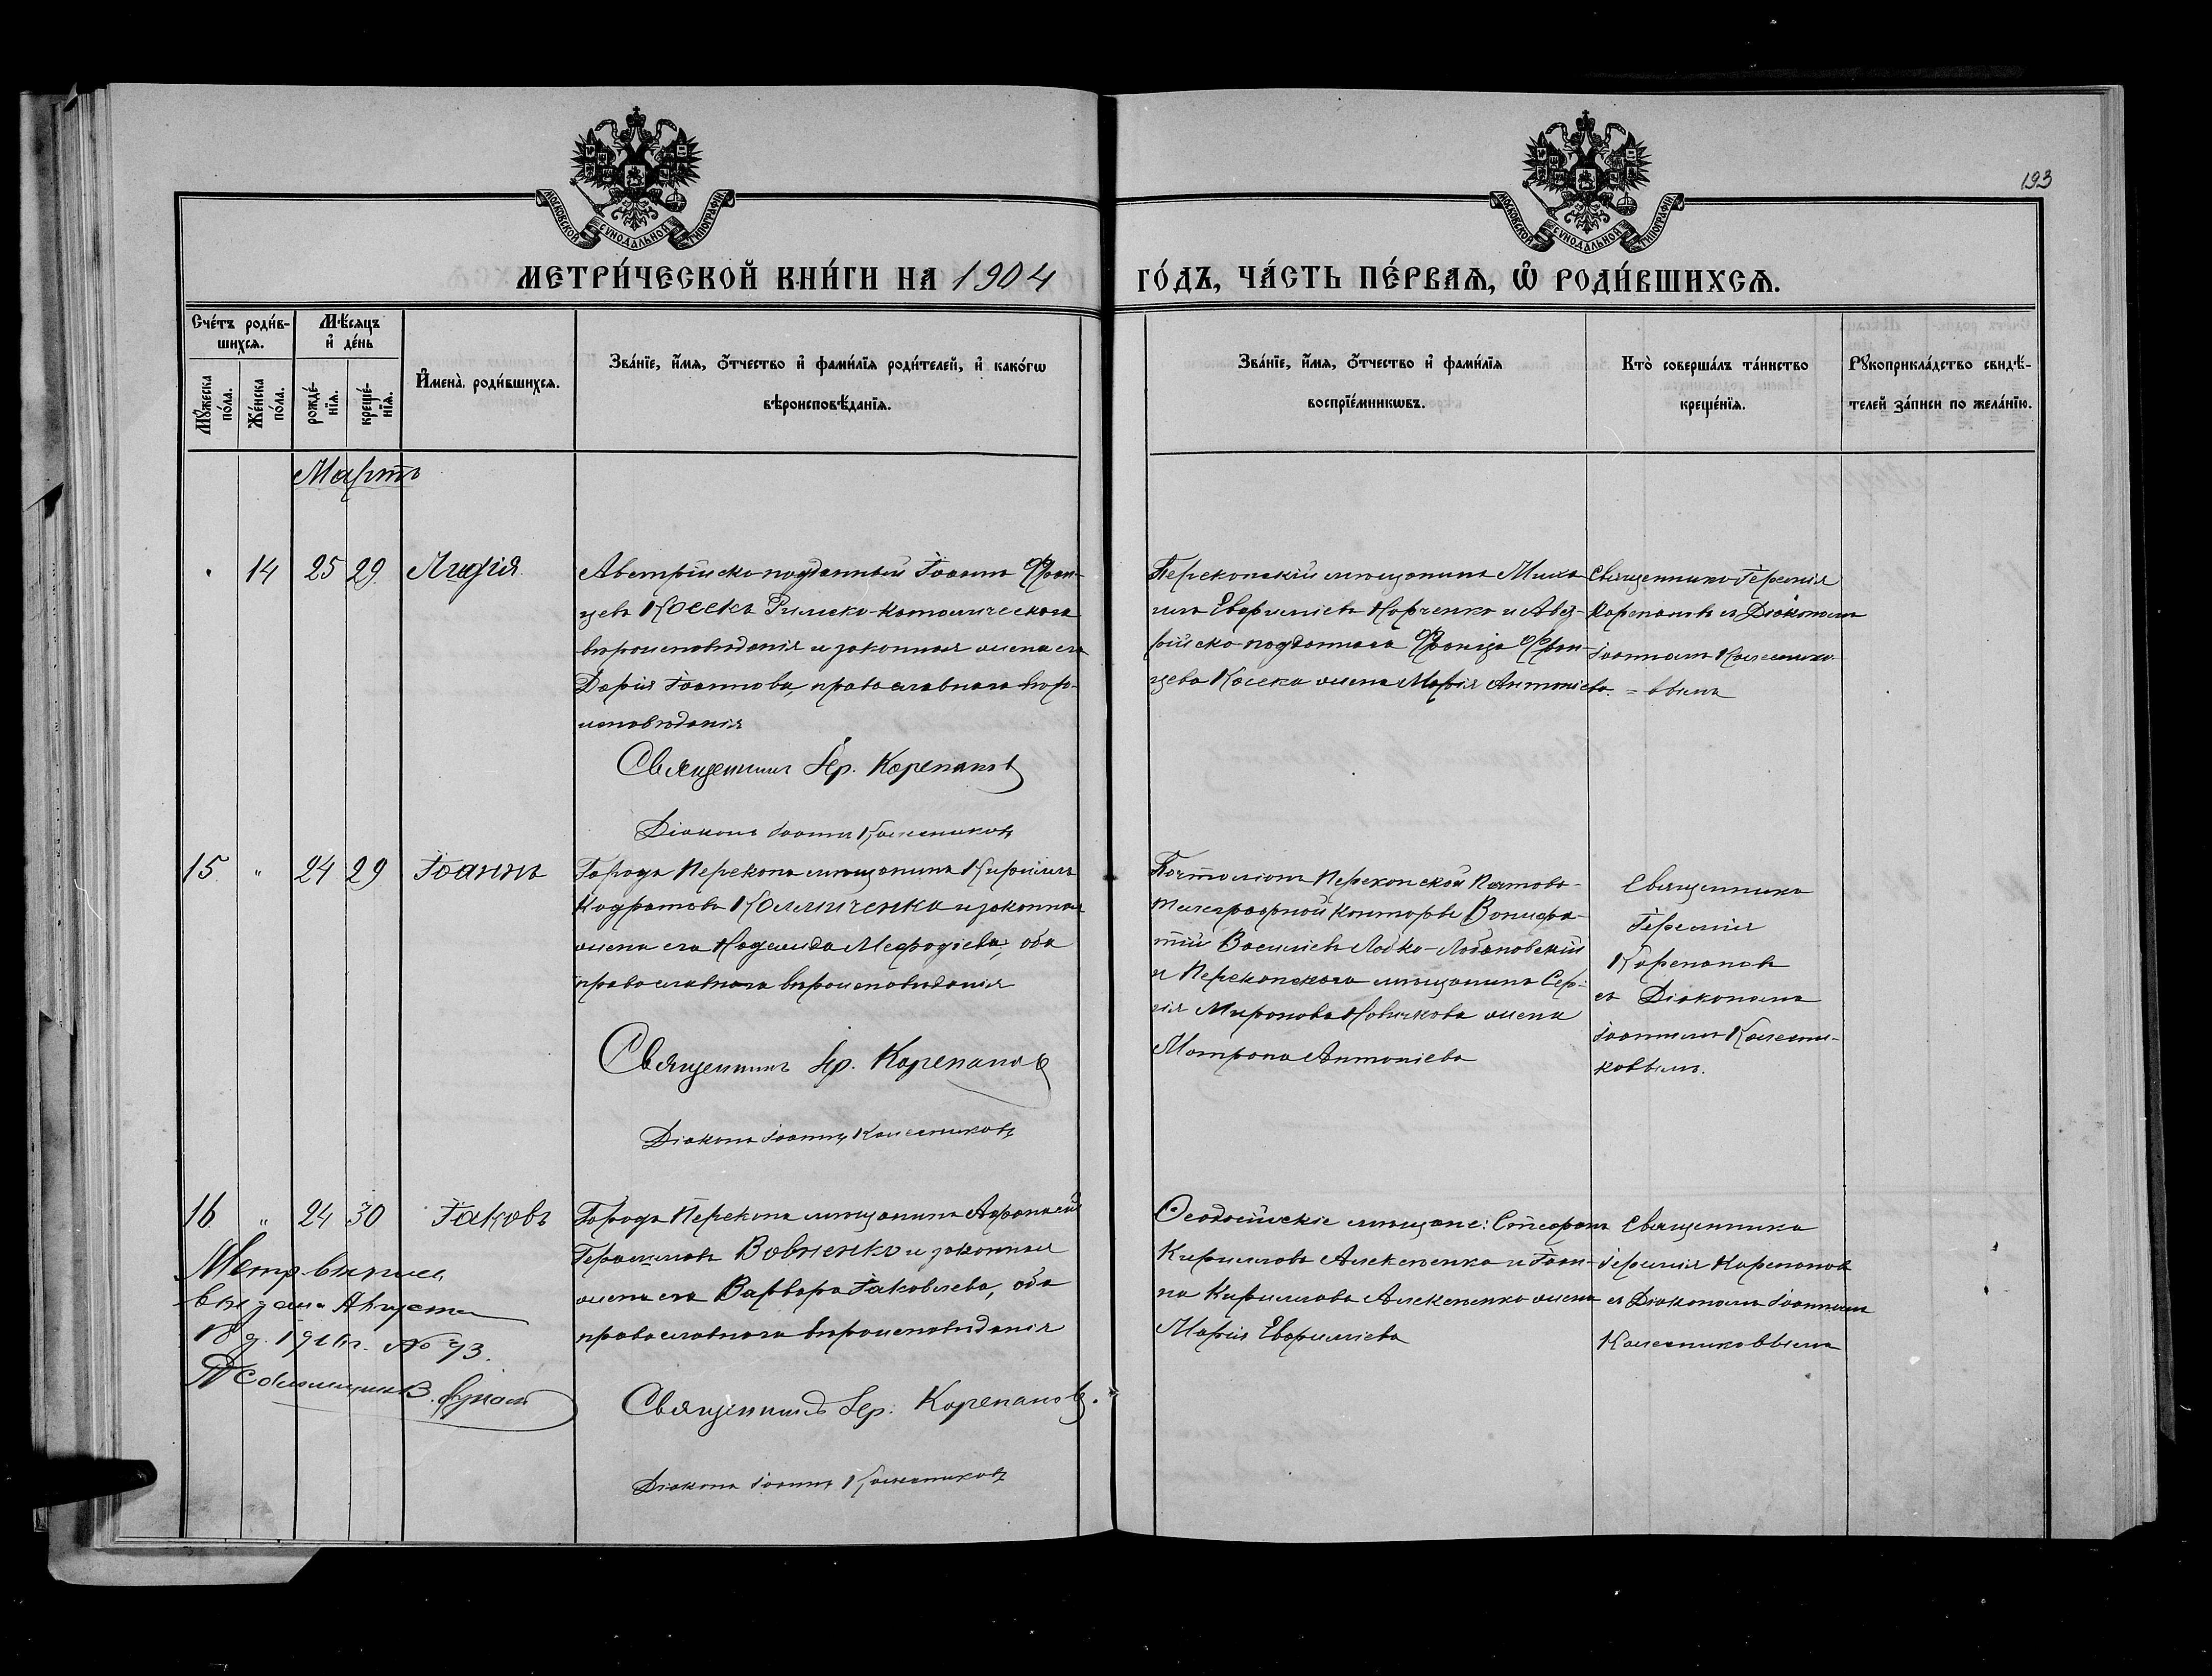 193
МОСКОВСКОЙ СѴНОДАЛЬНОЙ ТИПОГРАФІИ
МОСКОВСКОЙ СѴНОДАЛЬНОЙ ТИПОГРАФІИ
МЕТРИ́ЧЕСКОЙ КНИ́ГИ НА 1904 ГО́ДЪ, ЧА́СТЬ ПЕ́РВАѦ, Ѡ҆ РОДИ́ВШИХСѦ.
Сче́тъ роди́в-
шихсѧ.
Мꙋ́жеска по́ла.
Же́нска по́ла.
Мѣ́сяцъ
и҆ де́нь
рожде́-
нїѧ.
креще́-
нїѧ.
И҆мена̀ роди́вшихсѧ.
Зва́нїе, и҆́мѧ, о҆́тчество и҆ фами́лїѧ роди́телей, и҆ како́гѡ
вѣроисповѣ́данїѧ.
Зва́нїе, и҆́мѧ, о҆́тчество и҆ фами́лїѧ
воспрїе́мникѡвъ.
Кто̀ соверша́лъ та́инство
креще́нїѧ.
Рꙋкоприкла́дство свидѣ́-
телей за́писи по жела́нїю.
Мартъ
14 25 29 Лидія
Австрійско-подданный Іоаннъ Фран-
цевъ Косекъ Римско-католическаго
вѣроисповѣданія и законная жена его
Дарія Іоаннова, православнаго вѣро-
исповѣданія
Священникъ Іер. Карепановъ
Діаконъ Іоаннъ Колесниковъ
Перекопскій мѣщанинъ Миха
илъ Евфиміевъ Харченко и Авст-
рійско-подданнаго Франца Фран-
цева Косека жена Марія Антоніева.
Священникъ Іеремія
Карепановъ съ Діакономъ
Іоанномъ Колеснико-
=вымъ
15 " 24 29 Іоаннъ
Города Перекопа мѣщанинъ Кириллъ
Кодратовъ Колмиченко и законная
жена его Надежда Мефодіева, оба
православнаго вѣроисповѣданія
Священникъ Іер. Карепановъ
Діаконъ Іоаннъ Колесниковъ
Почталіонъ Перекопской Почтово-
телеграфной конторы Вонифа-
тій Васильевъ Лобко-Лобановскій
и Перекопскаго мѣщанина Сер-
гія Миронова Новикова жена
Матрона Антоніева
Священникъ
Іеремія
Карепановъ
съ Діакономъ
Іоанномъ Колесни-
ковымъ.
16 " 24 30 Іаковъ
Города Перекопа мѣщанинъ Афанасій
Герасимовъ Вовненко и законная
жена его Варвара Іаковлева, оба
православнаго вѣроисповѣданія
Священникъ Іер. Карепановъ.
Діаконъ Іоаннъ Колесниковъ
Ѳеодосійскіе мѣщане: Стефанъ
Кирилловъ Алексеенко и Іоан-
на Кириллова Алексеенко жена
Марія Евфиміева
Священникъ
Іеремія Карепановъ
съ Діакономъ Іоанномъ
Колесниковымъ
Метр. выпись
выдана Августа
№ 73.